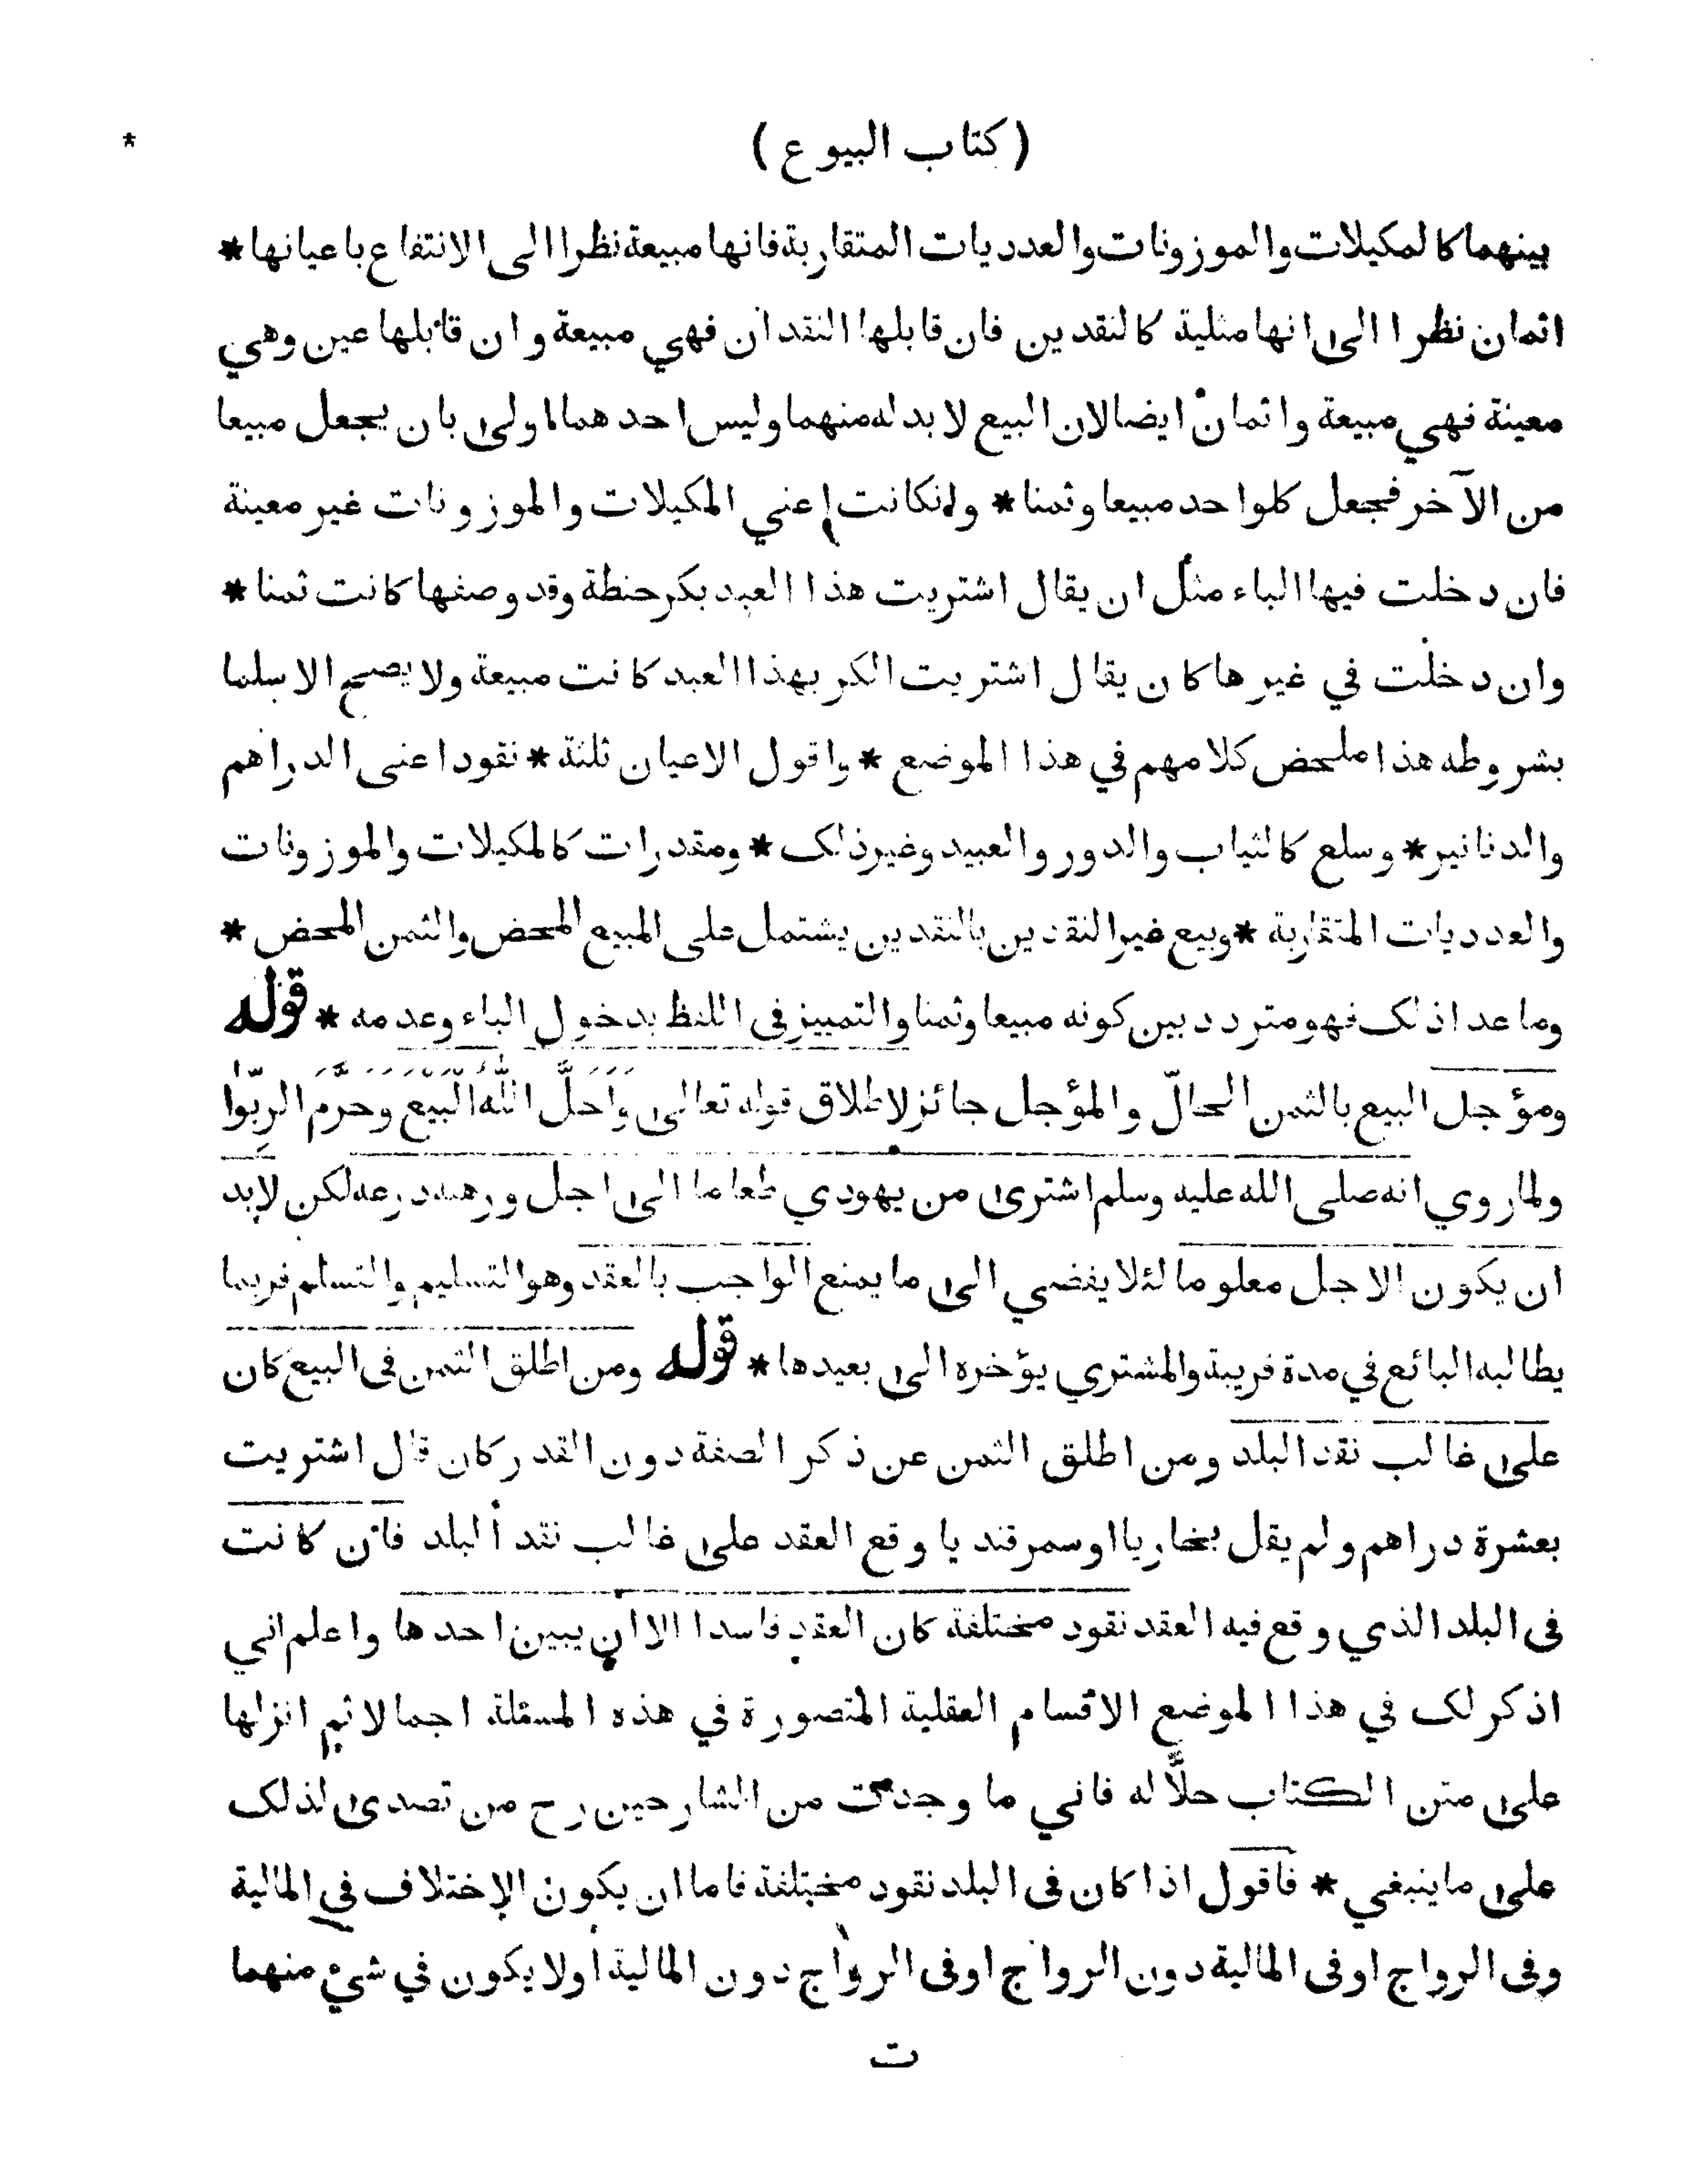 ( كتاب البيوع )
*
بينهما كالمكيلات والموزونات والعدديات المتقاربة فانها مبيعة نظرا الى الانتفاع باعيانها *
اثمان نظرا الى انها مثلية كالنقدين فان قابلها النقدان فهي مبيعة وان قابلها عين وهي
معينة فهي مبيعة واثمان ايضا لان البيع لا بد له منهما وليس احدهما اولى بان يجعل مبيعا
من الآخر فجعل كلواحد مبيعا وثمنا * وانكانت اعني المكيلات والموزونات غير معينة
فان دخلت فيها الباء مثل ان يقال اشتريت هذا العبد بكر حنطة وقد وصفها كانت ثمنا *
وان دخلت في غيرها كان يقال اشتريت الكر بهذا العبد كانت مبيعة ولا يصح الا سلما
بشروطه هذا ملخص كلامهم في هذا الموضع * واقول الاعيان ثلثة * نقود اعنى الدراهم
والدنانير * وسلع كالثياب والدور والعبيد وغير ذلك * ومقدرات كالمكيلات والموزونات
والعدديات المتقاربة * وبيع غير النقدين بالنقدين يشتمل على المبيع المحض والثمن المحض *
وما عدا ذلك فهو متردد بين كونه مبيعا وثمنا والتمييز فى اللفظ بدخول الباء وعدمه * قوله
ومؤجل البيع بالثمن الحالّ والمؤجل جائز لاطلاق قوله تعالى وَاَحَلَّ اللّٰهُ الْبَيْعَ وَحَرَّمَ الرِّبٰوا
ولما روي انه صلى الله عليه وسلم اشترى من يهودي طعاما الى اجل ورهنه درعه لكن لابد
ان يكون الاجل معلوما لئلا يفضي الى ما يمنع الواجب بالعقد وهو التسليم والتسلم فربما
يطالبه البائع في مدة قريبة والمشتري يؤخره الى بعيدها * قوله ومن اطلق الثمن فى البيع كان
على غالب نقد البلد ومن اطلق الثمن عن ذكر الصفة دون القدر كان قال اشتريت
بعشرة دراهم ولم يقل بخاريا او سمرقنديا وقع العقد على غالب نقد البلد فان كانت
فى البلد الذي وقع فيه العقد نقود مختلفة كان العقد فاسدا الا ان يبين احدها واعلم اني
اذكر لك في هذا الموضع الاقسام العقلية المتصورة في هذه المسئلة اجمالا ثم انزلها
على متن الكتاب حلّا له فاني ما وجدت من الشارحين رح من تصدى لذلك
على ما ينبغي * فاقول اذا كان فى البلد نقود مختلفة فاما ان يكون الاختلاف في المالية
وفى الرواج او فى المالية دون الرواج او فى الرواج دون المالية او لا يكون في شيء منهما
ت